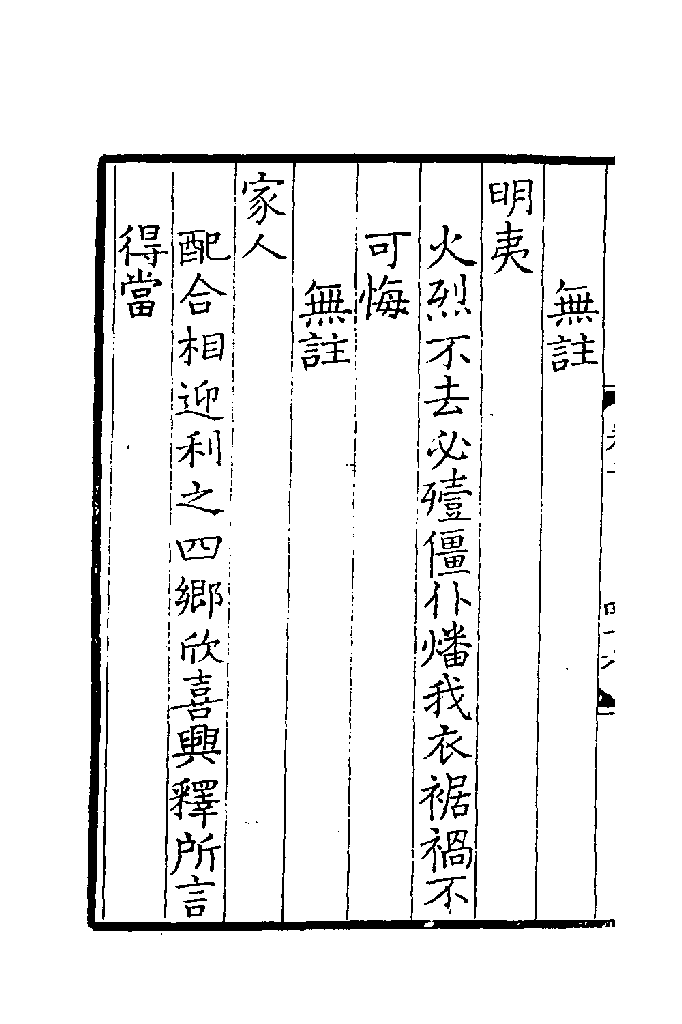 無註
明夷
火烈不去必殪僵仆燔我衣裾禍不
可悔
無註
家人
配合相迎利之四鄉欣喜興釋所言
得當